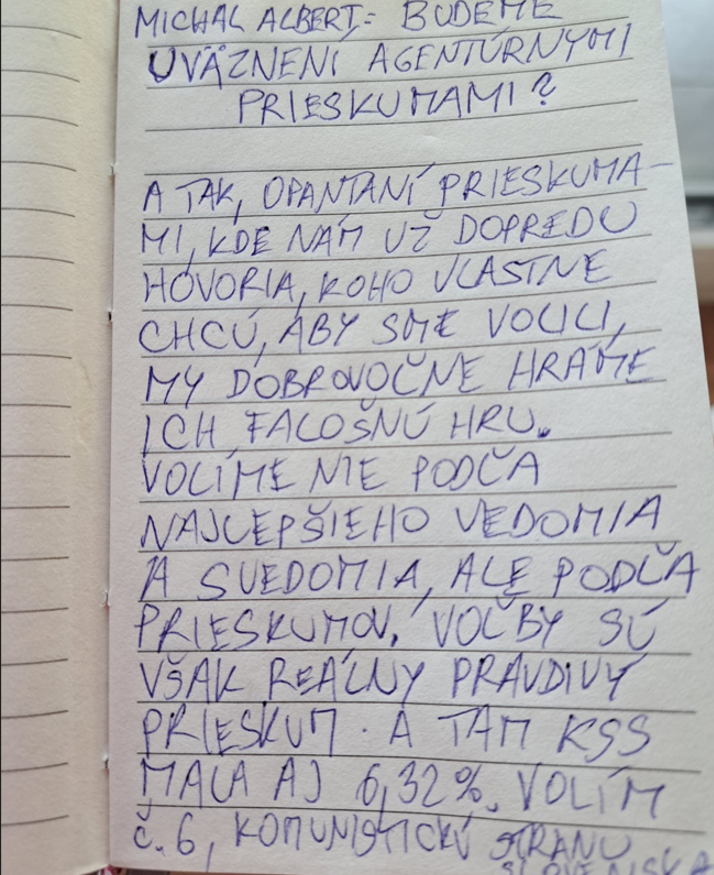 MICHAL ALBERT: BUDEME
UVÄZNENÍ AGENTÚRNYMI
PRIESKUMAMI?
A TAK, OPANTANÍ PRIESKUMA-
MI, KDE NÁM UŽ DOPREDU
HOVORIA, KOHO VLASTNE
CHCÚ, ABY SME VOLILI,
MY DOBROVOĽNE HRÁME
ICH FALOŠNÚ HRU.
VOLÍME NIE PODĽA
NAJLEPŠIEHO VEDOMIA
A SVEDOMIA, ALE PODĽA
PRIESKUMOV. VOĽBY SÚ
VŠAK REÁLNY PRAVDIVÝ
PRIESKUM. A TAM KSS
MALA AJ 6,32%. VOLÍM
č. 6, KOMUNISTICKÚ STRANU
SLOVENSKA